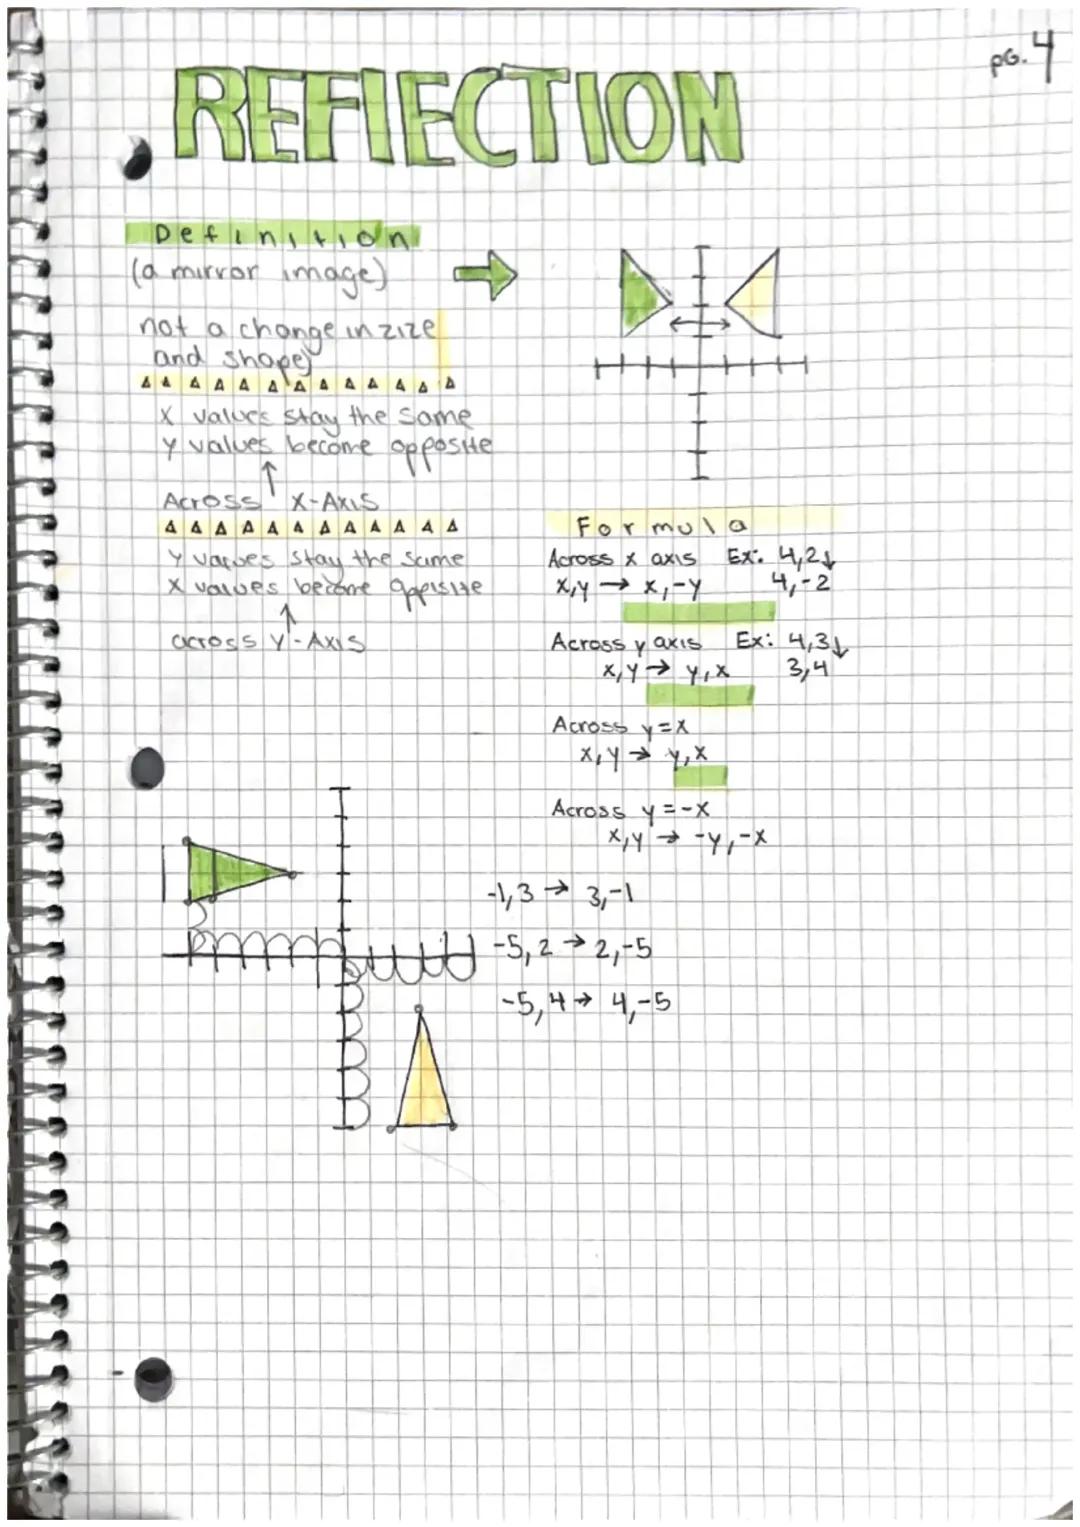 pG. 4
REFLECTION
Definition
(a mirror image)
not a change in zize
and shape
X values stay the same
Y values become opposite
Across X-AXIS
Y values stay the same
X values become oppisite
across Y-AXIS
Formula
Across x axis Ex: 4,2↓
x,y → x,-y 4,-2
Across y axis Ex: 4,3↓
x,y → y,x 3,4
Across y=x
x,y → y,x
Across y=-x
x,y → -y,-x
-1,3 → 3,-1
-5,2 → 2,-5
-5,4 → 4,-5